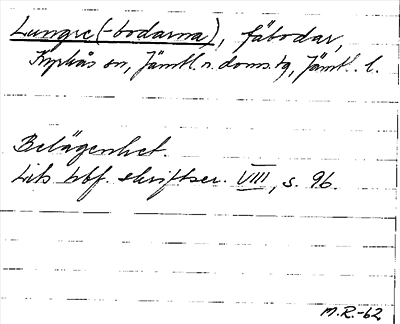 Lungre (-bodarna), fäbodar,
Kyrkås sn, Jämtl. n. doms. tg, Jämtl. l.
Belägenhet.
Lits hbf. skriftser. VIII, s. 96.
M.R.-62